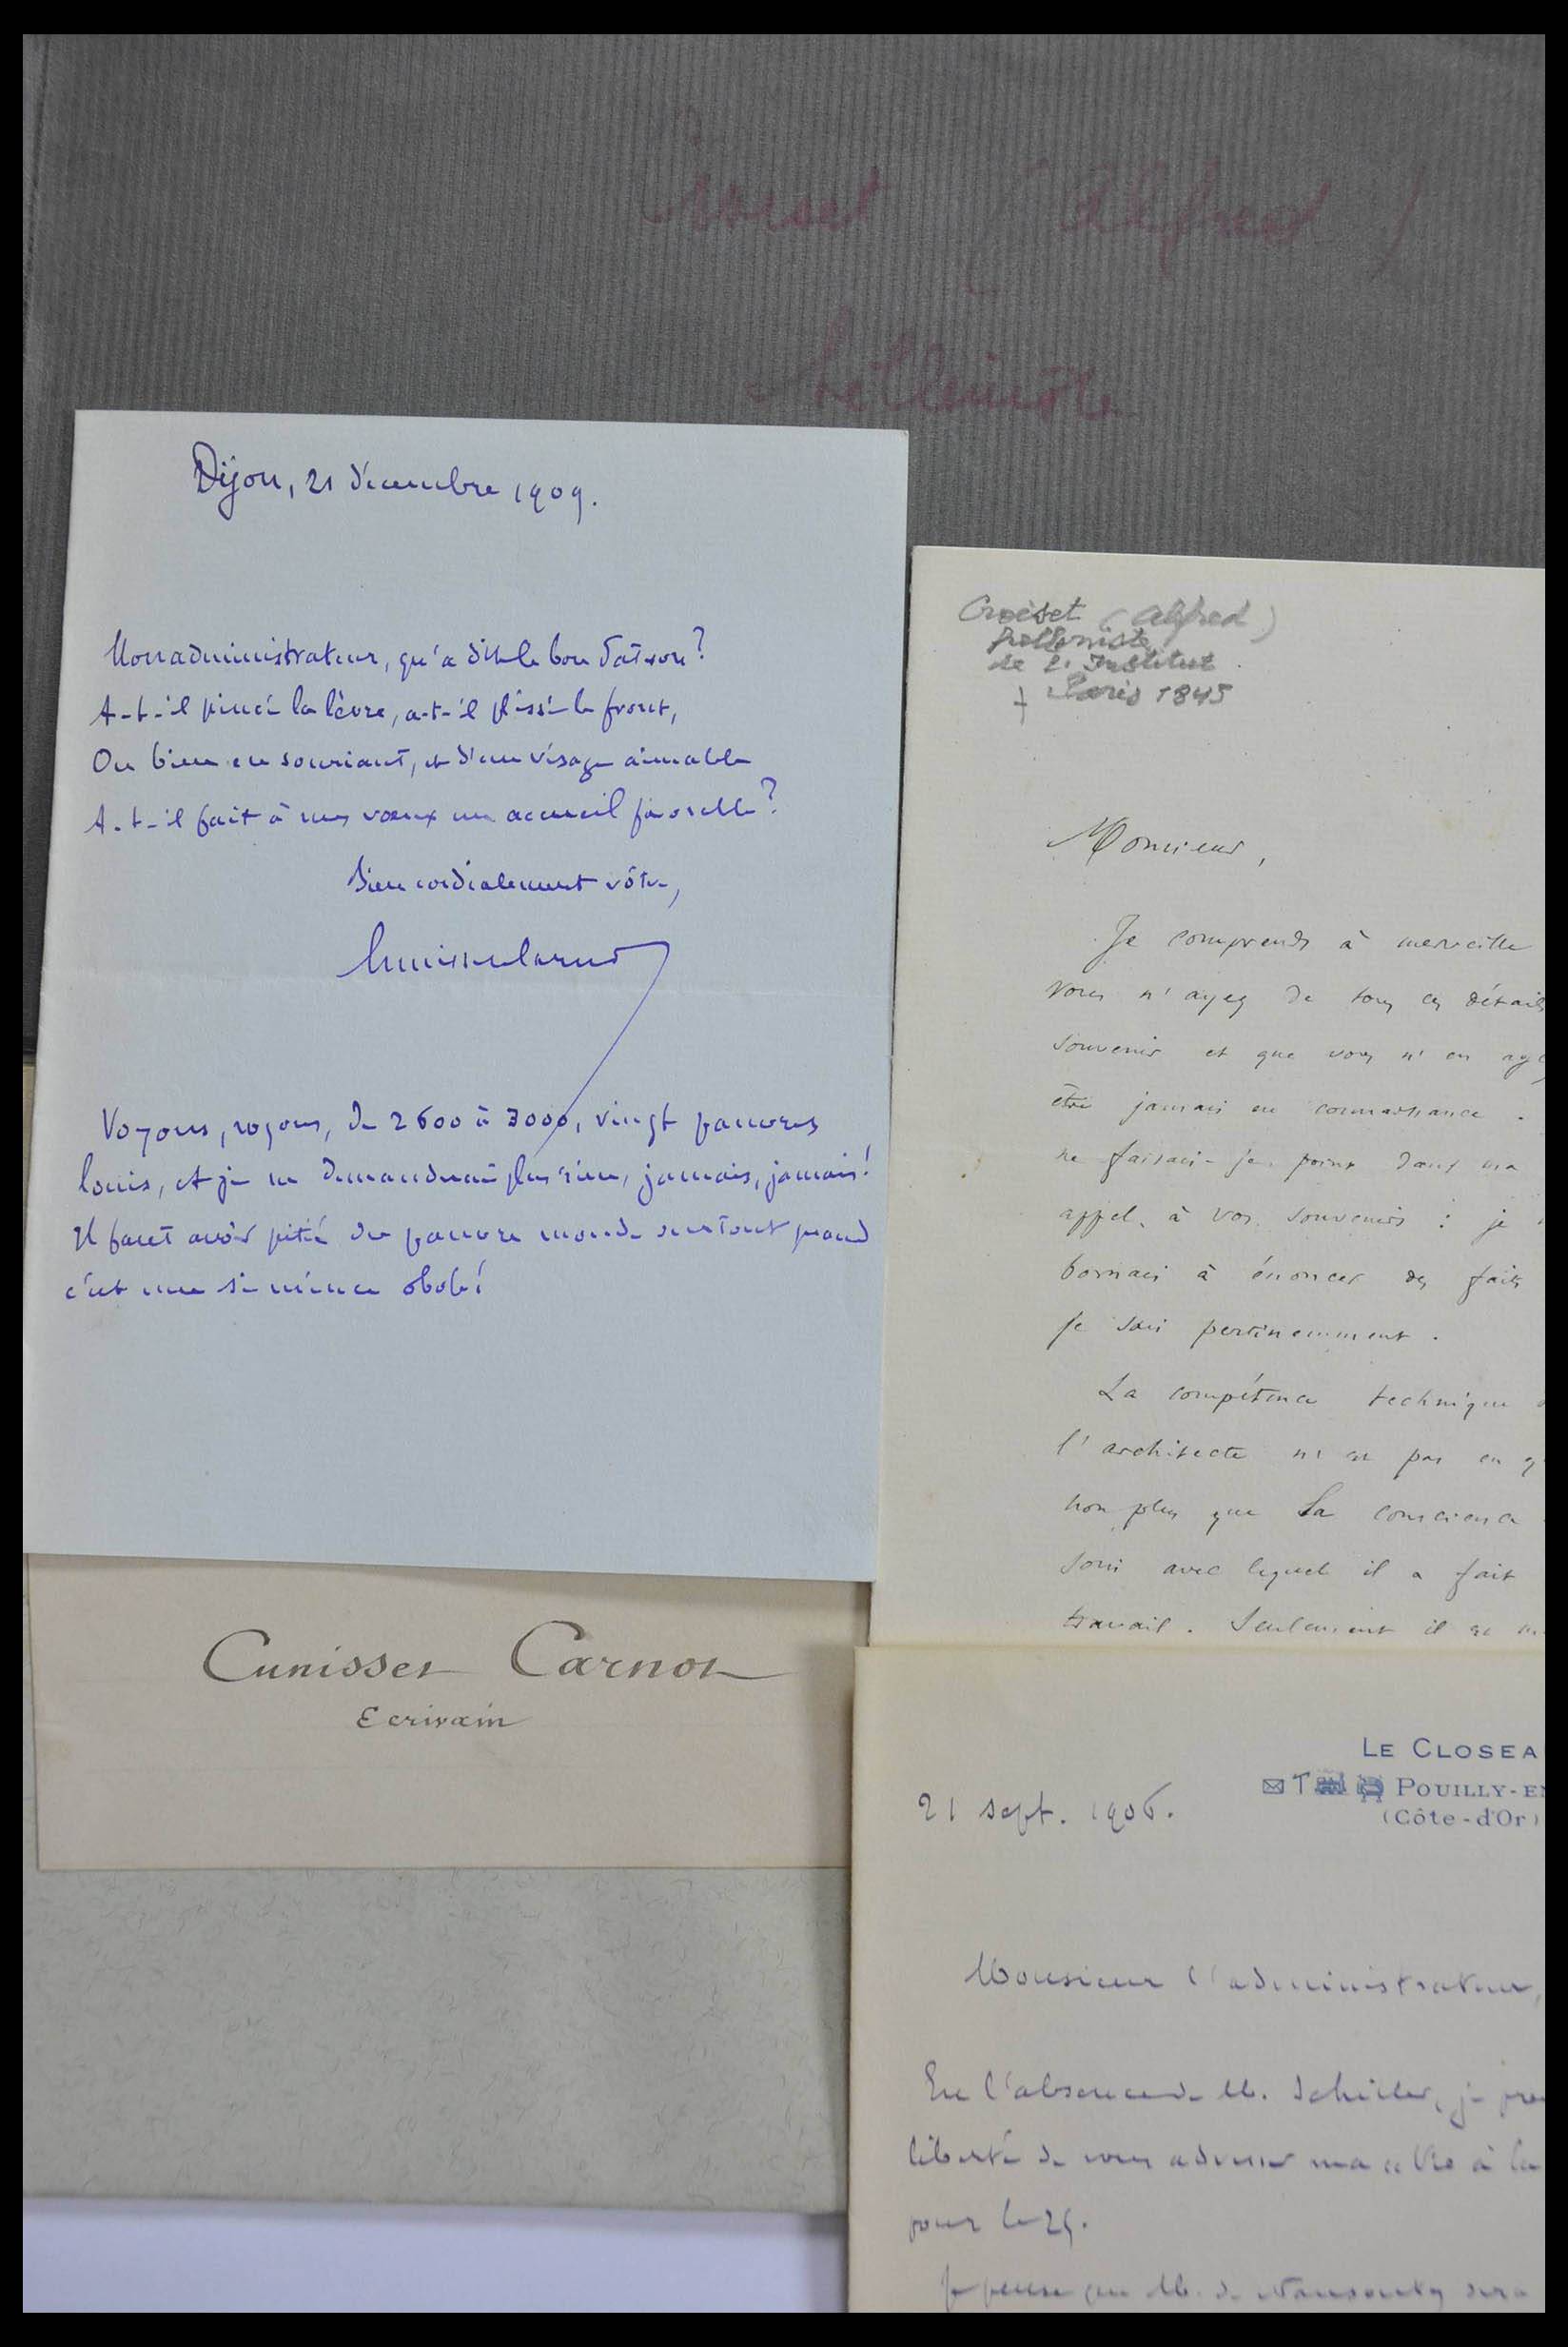 Croiset (Alfred)
helléniste
Dijon, 21 décembre 1909.
Mon administrateur, qu'a dit le bon
A-t-il pincé la lèvre, a-t-il plissé le front,
Ou bien en souriant, et d'un visage aimable
A-t-il fait à mes vœux un accueil favorable?
Bien cordialement vôtre,
Cunisset Carnot
Voyons, voyons, de 2600 à 3000, vingt pauvres
louis, et je ne demanderai plus rien, jamais, jamais!
Il faut avoir pitié du pauvre monde surtout quand
c'est une si mince obole!
Croiset (Alfred)
helléniste
de l'Institut
+ Paris 1845
Monsieur,
Je comprends à merveille
vous n'ayez de tous ces détails
souvenir et que vous n'en aye
être jamais eu connaissance.
ne faisais-je point dans ma
appel à vos souvenirs : je
bornais à énoncer des faits
je sais pertinemment.
La compétence technique
l'architecte n'est pas en q
non plus que la conscience
soin avec lequel il a fait
travail. Seulement il
Cunisset Carnot
Ecrivain
LE CLOSEA
POUILLY-E
(Côte-d'Or)
21 sept. 1906.
Monsieur l'administrateur,
En l'absence de M. Schiller, je pre
liberté de vous adresser ma à la
pour le
Je pense que M. de Nansouty sera